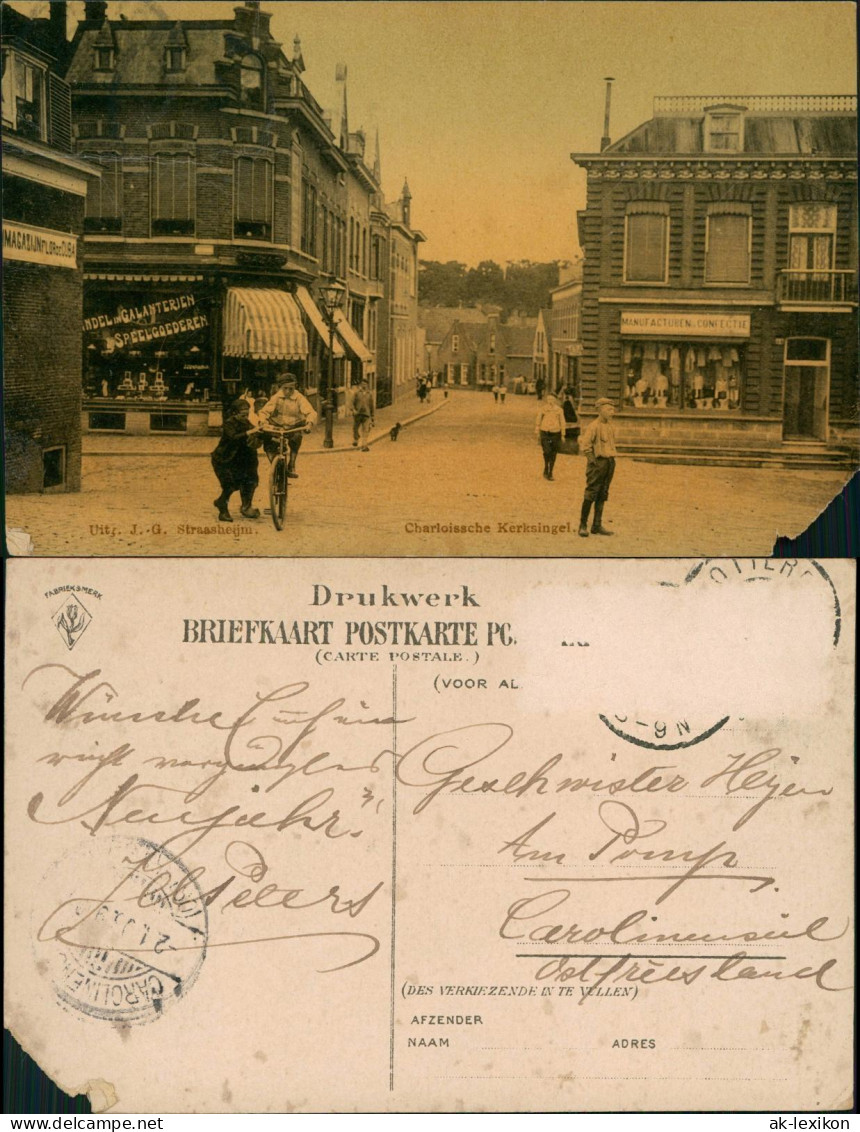 MAGAZIJN FLOR DE CUBA
NDEL IN GALANTERIEN
SPEELGOEDEREN
MANUFACTUREN & CONFECTIE
Uitg. J. G. Straasheijm.
Charloissche Kerksingel.
FABRIEKSMERK
Drukwerk
BRIEFKAART POSTKARTE PC.
(CARTE POSTALE.)
(VOOR AL
OTTER
5-9 N
Wünsche Euch ein
recht vergnügtes
Neujahr.
Peters
Geschwister Heyen
Am Pomp
Carolinensiel
Ostfriesland
2.1.
CAROLINEN
(DES VERKIEZENDE IN TE VULLEN)
AFZENDER
NAAM
ADRES
ak-lexikon